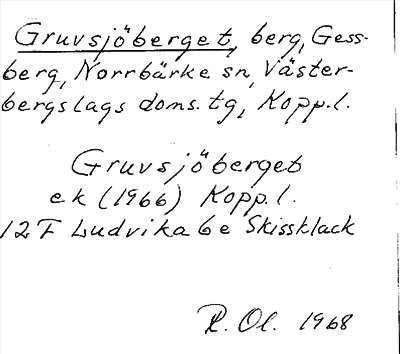 Gruvsjöberget, berg, Gess-
berg, Norrbärke sn, Väster-
bergslags doms. tg, Kopp. l.
Gruvsjöberget
ek (1966) Kopp. l.
12 F Ludvika 6 e Skissklack
R. Ol. 1968